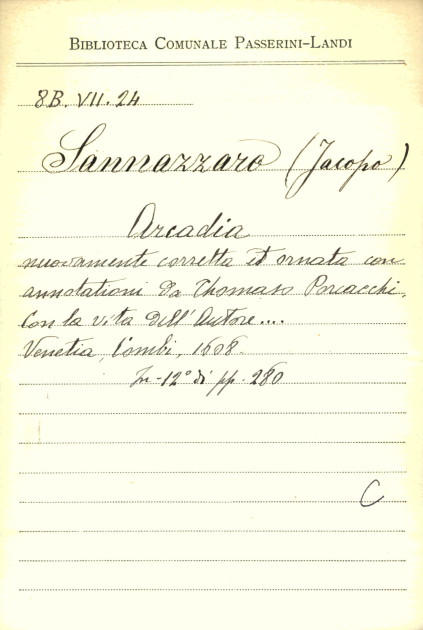 BIBLIOTECA COMUNALE PASSERINI-LANDI
8B. VII. 24
Sannazzaro (Jacopo)
Arcadia
nuovamente corretta et ornata con
annotationi da Thomaso Porcacchi.
Con la vita dell'Autore....
Venetia, Combi, 1608.
In-12° di pp. 280
C